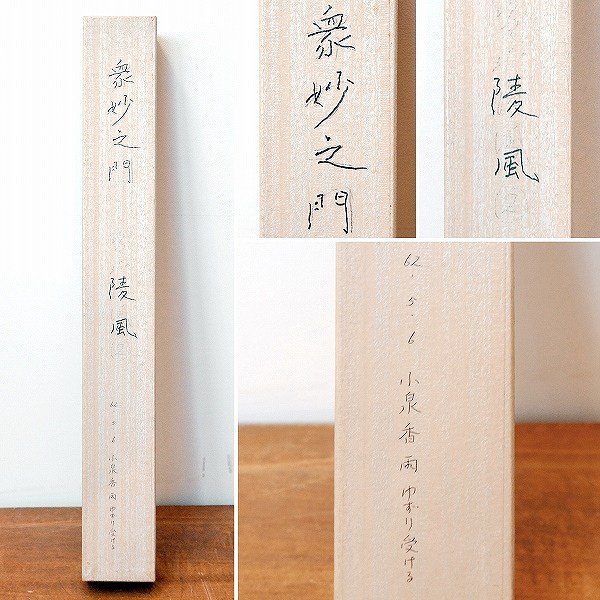 衆妙之門
陵風
62.5.6 小泉香雨 ゆずり受ける
衆妙之門
陵風
62.5.6 小泉香雨 ゆずり受ける